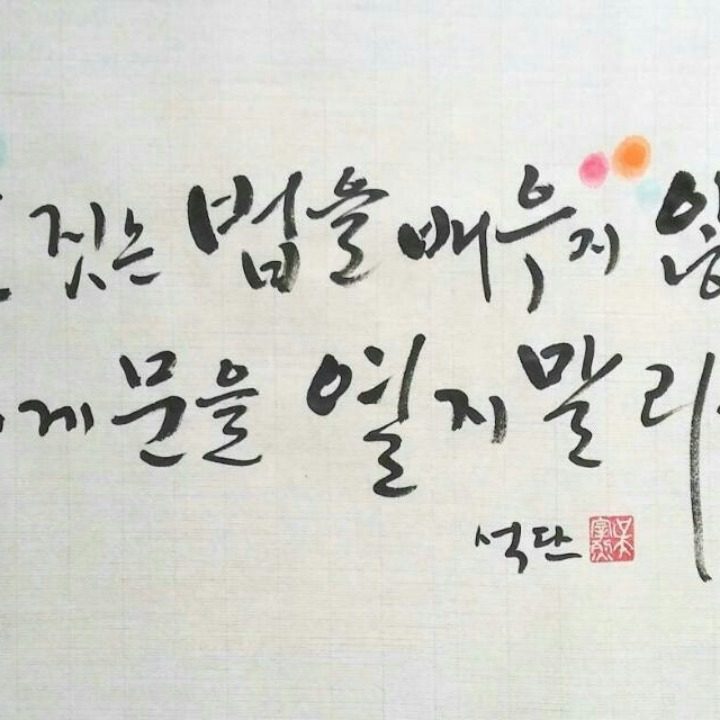 짓는 법을 배우지
게 문을 열지 말라
석단